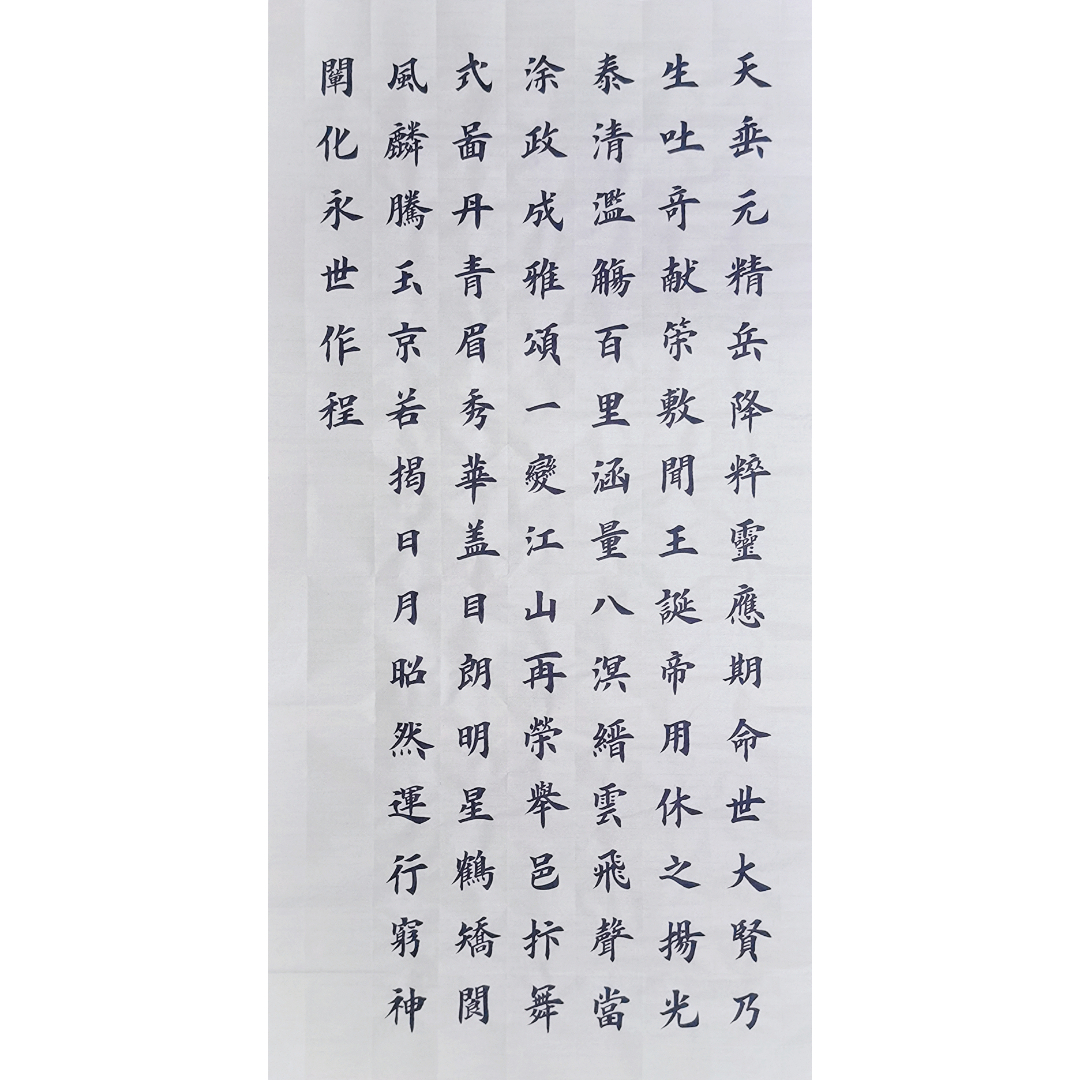 天垂元精岳降粹靈應期命世大賢乃
生吐奇献策敷聞王誕帝用休之揚光
泰清濫觴百里涵量八溟縉雲飛聲當
涂政成雅頌一變江山再榮舉邑抃舞
式啚丹青眉秀華盖目朗明星鶴矯閬
風麟騰玉京若揭日月昭然運行窮神
闡化永世作程